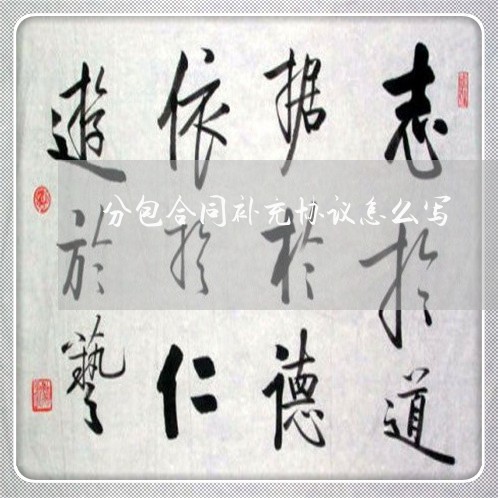 志於道
据於德
依於仁
遊於藝
分包合同补充协议怎么写